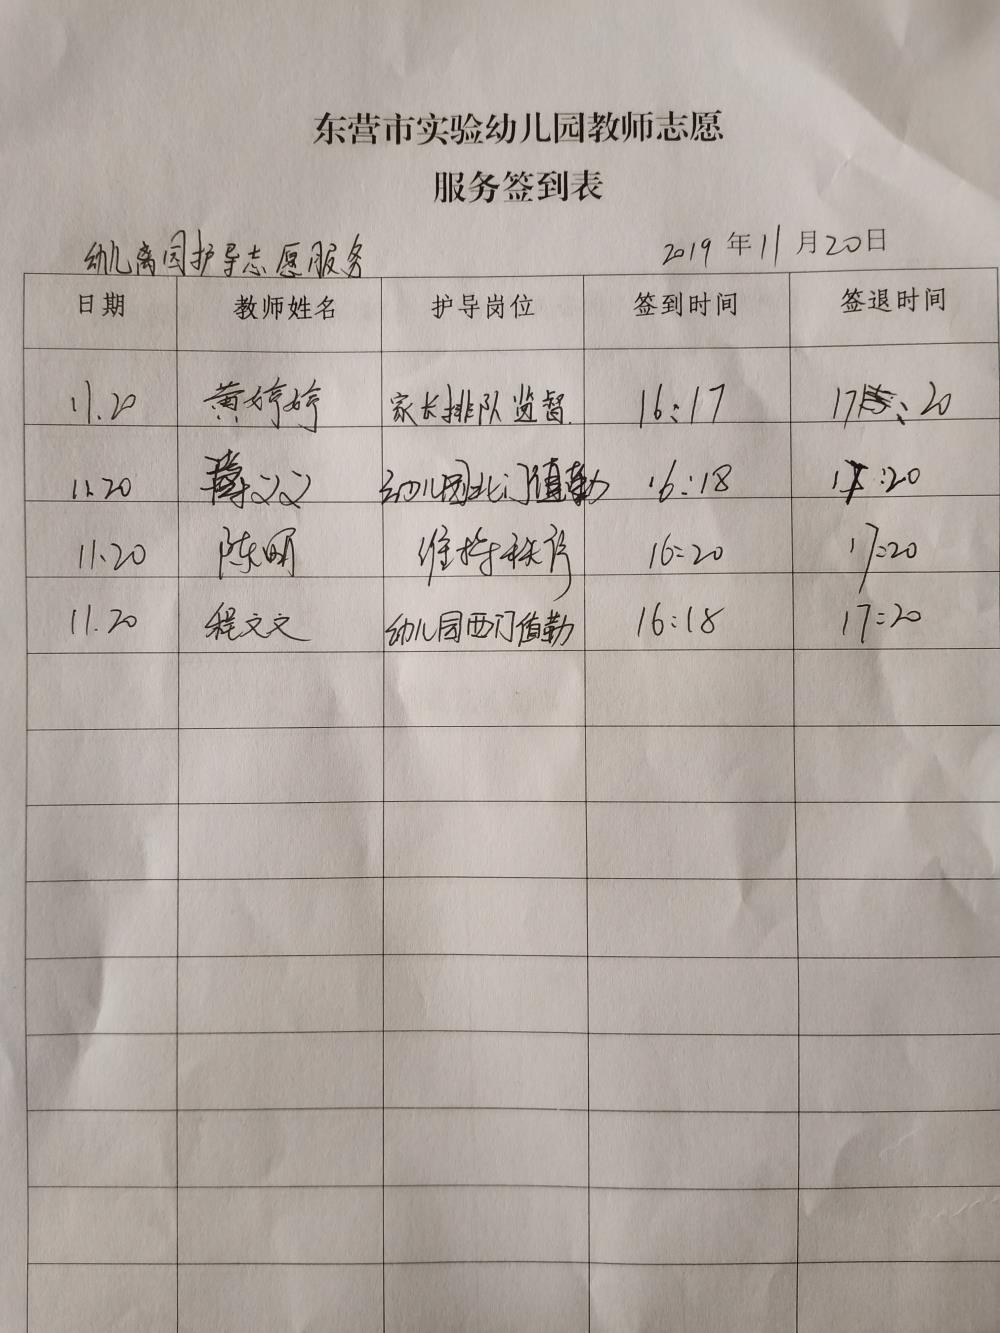 东营市实验幼儿园教师志愿
服务签到表
幼儿离园护导志愿服务 2019年11月20日
日期 教师姓名 护导岗位 签到时间 签退时间
11.20 黄婷婷 家长排队监督. 16:17 17:20
11.20 幼儿园北门值勤 16:18 17:20
11.20 陈明 维持秩序 16:20 17:20
11.20 程文文 幼儿园西门值勤 16:18 17:20